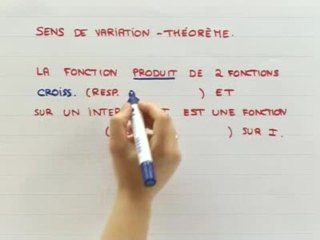 SENS DE VARIATION - THÉORÈME.
LA FONCTION PRODUIT DE 2 FONCTIONS
CROISS. (RESP. ) ET
SUR UN EST UNE FONCTION
( ) SUR I.